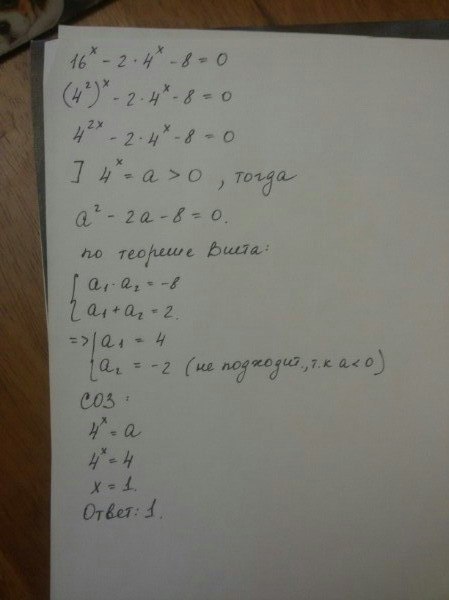 16^x - 2 · 4^x - 8 = 0
(4^2)^x - 2 · 4^x - 8 = 0
4^{2x} - 2 · 4^x - 8 = 0
] 4^x = a > 0 , тогда
a^2 - 2a - 8 = 0.
по теореме Виета:
{ a₁ · a₂ = -8
a₁ + a₂ = 2.
=> { a₁ = 4
a₂ = -2 (не подходит, т.к a < 0)
СОЗ :
4^x = a
4^x = 4
x = 1.
Ответ: 1.